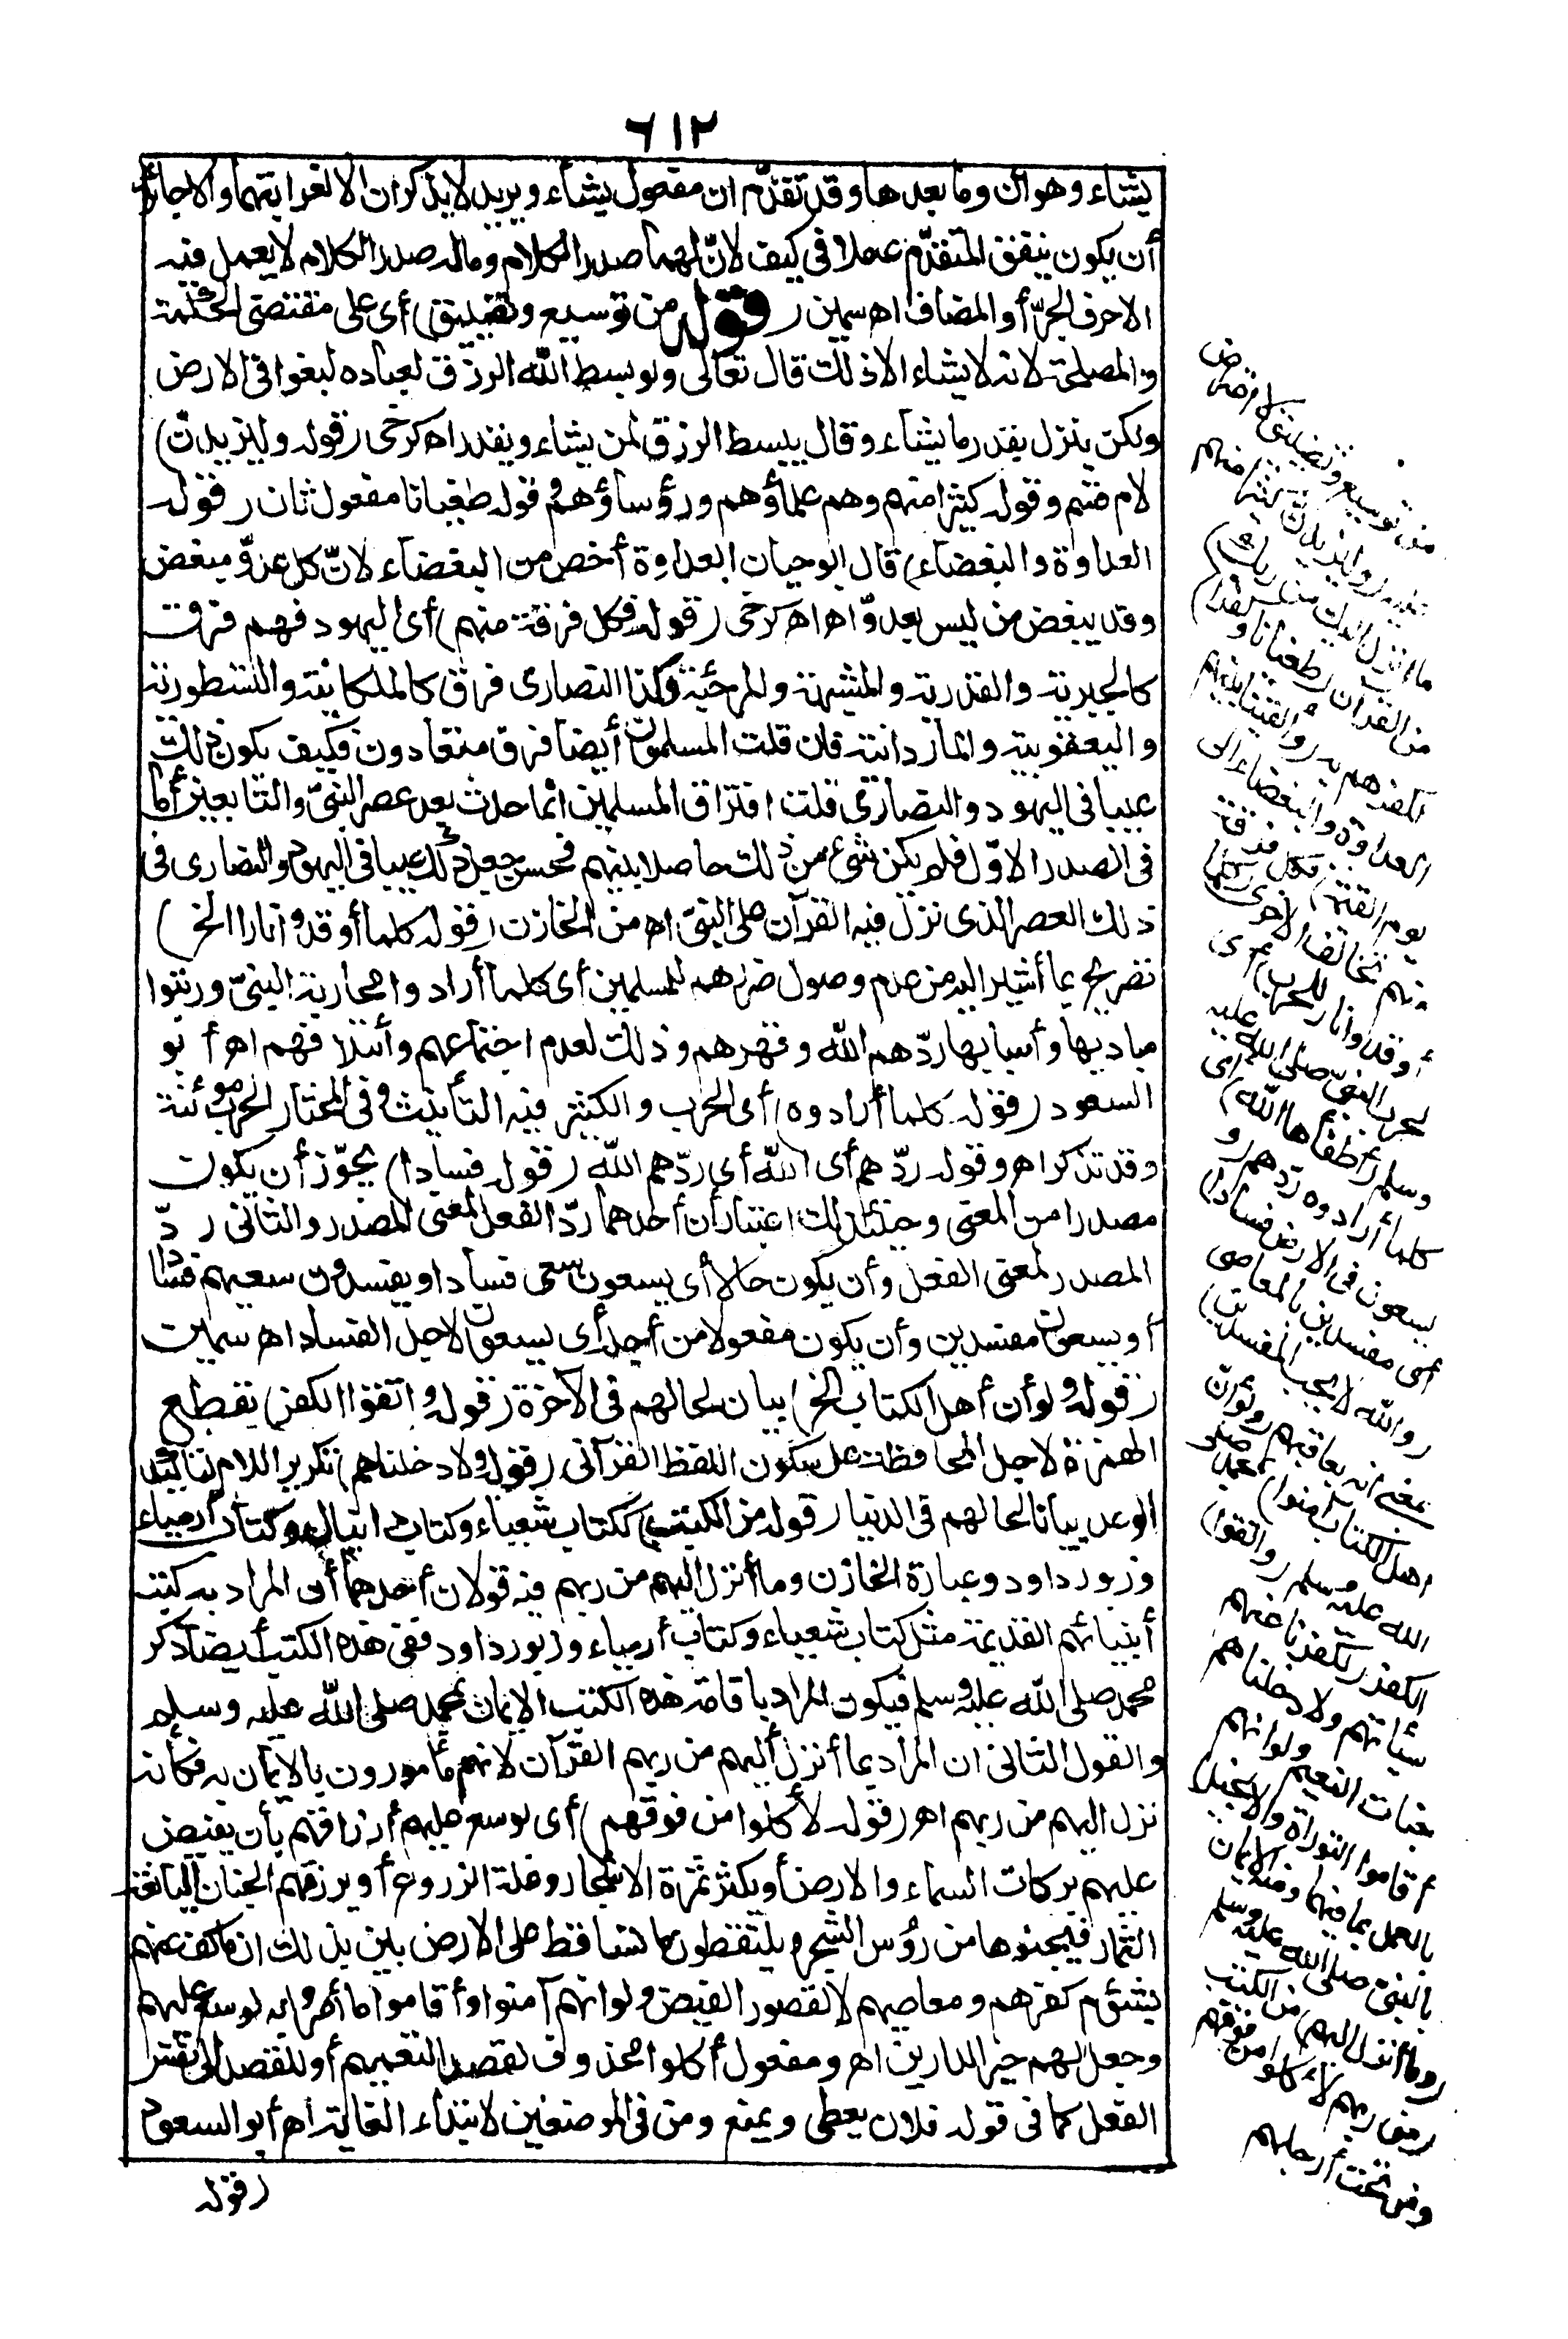 ٦١٢
يشاء وهو ان وما بعدها وقد تقدّم ان مفعول يشاء ويريد لا يذكران الا لغرابتهما والا جائز
أن يكون ينفق المتقدّم عملا في كيف لانّ لها صدر الكلام وماله صدر الكلام لا يعمل فيه
الا حرف الجرّ أو المضاف اه سمين (قوله من توسيع وتضييق) أى على مقتضى الحكمة
والمصلحة لانه لا يشاء الا ذلك قال تعالى ولو بسط الله الرزق لعباده لبغوا فى الارض
ولكن ينزل بقدر ما يشاء وقال يبسط الرزق لمن يشاء ويقدر اه كرخى (قوله وليزيدنّ)
لام قسم وقوله كثيرا منهم وهم علماؤهم ورؤساؤهم وقوله طغيانا مفعول ثان (قوله
العداوة والبغضاء) قال ابو حيان العداوة أخص من البغضاء لانّ كل عدوّ مبغض
وقد يبغض من ليس بعدوّ اه اه كرخى (قوله فكل فرقة منهم) أى اليهود فهم فرق
كالجبرية والقدرية والمشبهة والمرجئة وكذا النصارى فرق كالملكانية والنسطورية
واليعقوبية والماردانية فان قلت المسلمون أيضا فرق متعادون فكيف يكون ذلك
عيبا فى اليهود والنصارى قلت افتراق المسلمين انما حدث بعد عصر النبىّ والتابعين أما
فى الصدر الاوّل فلم يكن شئ من ذلك حاصلا بينهم فحسن جعل ذلك عيبا فى اليهود والنصارى فى
ذلك العصر الذى نزل فيه القرآن على النبىّ اه من الخازن (قوله كلما أوقدوا نارا الخ)
تصريح بما أشير اليه من عدم وصول ضررهم للمسلمين أى كلما أرادوا محاربة النبىّ ورتبوا
مباديها وأسبابها ردّهم الله وقهرهم وذلك لعدم اجتماعهم وائتلافهم اه أبو
السعود (قوله كلما أرادوه) أى الحرب والكثير فيه التأنيث وفى المختار الحرب مؤنثة
وقد تذكر اه وقوله ردّهم أى الله أى ردّهم الله (قوله فسادا) يجوّز أن يكون
مصدرا من المعنى وحينئذ لك اعتباران أحدهما ردّ الفعل لمعنى المصدر والثانى ردّ
المصدر لمعنى الفعل وأن يكون حالا أى يسعون سعى فسادا ويفسدون سعيهم فسادا
أو يسعون مفسدين وأن يكون مفعولا من أجله أى يسعون لاجل الفساد اه سمين
(قوله ولو أن أهل الكتاب الخ) بيان لحالهم فى الآخرة (قوله واتقوا الكفر) بقطع
الهمزة لاجل المحافظة على سكون اللفظ القرآنى (قوله ولادخلناهم) تكرير اللام لتأكيد
الوعد بيانا لحالهم فى الدنيا (قوله من الكتب) ككتاب شعياء وكتاب دانيال وكتاب أرمياء
وزبور داود وعبارة الخازن وما أنزل اليهم من ربهم فيه قولان أحدهما أن المراد به كتب
أنبيائهم القديمة مثل كتاب شعياء وكتاب أرمياء وزبور داود ففى هذه الكتب أيضا ذكر
محمد صلى الله عليه وسلم فيكون المراد باقامة هذه الكتب الايمان بمحمد صلى الله عليه وسلم
والقول الثانى ان المراد بما أنزل اليهم من ربهم القرآن لانهم مأمورون بالايمان به فكأنه
نزل اليهم من ربهم اه (قوله لأكلوا من فوقهم) أى لوسع عليهم أرزاقهم بأن يفيض
عليهم بركات السماء والارض أو يكثر ثمرة الاشجار وغلة الزروع أو يرزقهم الجنان اليانعة
الثمار فيجنوها من رؤس الشجر ويلتقطون ما تساقط على الارض بين بذلك ان ما كف عنهم
بشؤم كفرهم ومعاصيهم لا لقصور الفيض ولو انهم آمنوا وأقاموا ما أمروا به لوسع عليهم
وجعل لهم خير الدارين اه ومفعول أكلوا محذوف لقصد التعميم أو للقصد الى نفس
الفعل كما فى قوله فلان يعطى ويمنع ومن فى الموضعين لابتداء الغاية اه أبو السعود
(قوله
من توسيع وتضييق لا اعتراض
عليه (وليزيدنّ كثيرا منهم
ما أنزل اليك من ربك)
من القرآن (طغيانا وكفرا)
لكفرهم به (وألقينا بينهم
العداوة والبغضاء الى
يوم القيمة) فكل فرقة
منهم تخالف الاخرى (كلما
أوقدوا نارا للحرب) أى
لحرب النبىّ صلى الله عليه
وسلم (أطفأها الله) أى
كلما أرادوه ردّهم (و
يسعون فى الارض فسادا)
أى مفسدين بالمعاصى
(والله لا يحب المفسدين)
بمعنى انه يعاقبهم (ولو أنّ
أهل الكتاب آمنوا) بمحمد صلى
الله عليه وسلم (واتقوا)
الكفر (لكفرنا عنهم
سيئاتهم ولادخلناهم
جنات النعيم ولو انهم
أقاموا التوراة والانجيل)
بالعمل بما فيهما ومنه الايمان
بالنبىّ صلى الله عليه وسلم
(وما أنزل اليهم) من الكتب
(من ربهم لأكلوا من فوقهم
ومن تحت أرجلهم